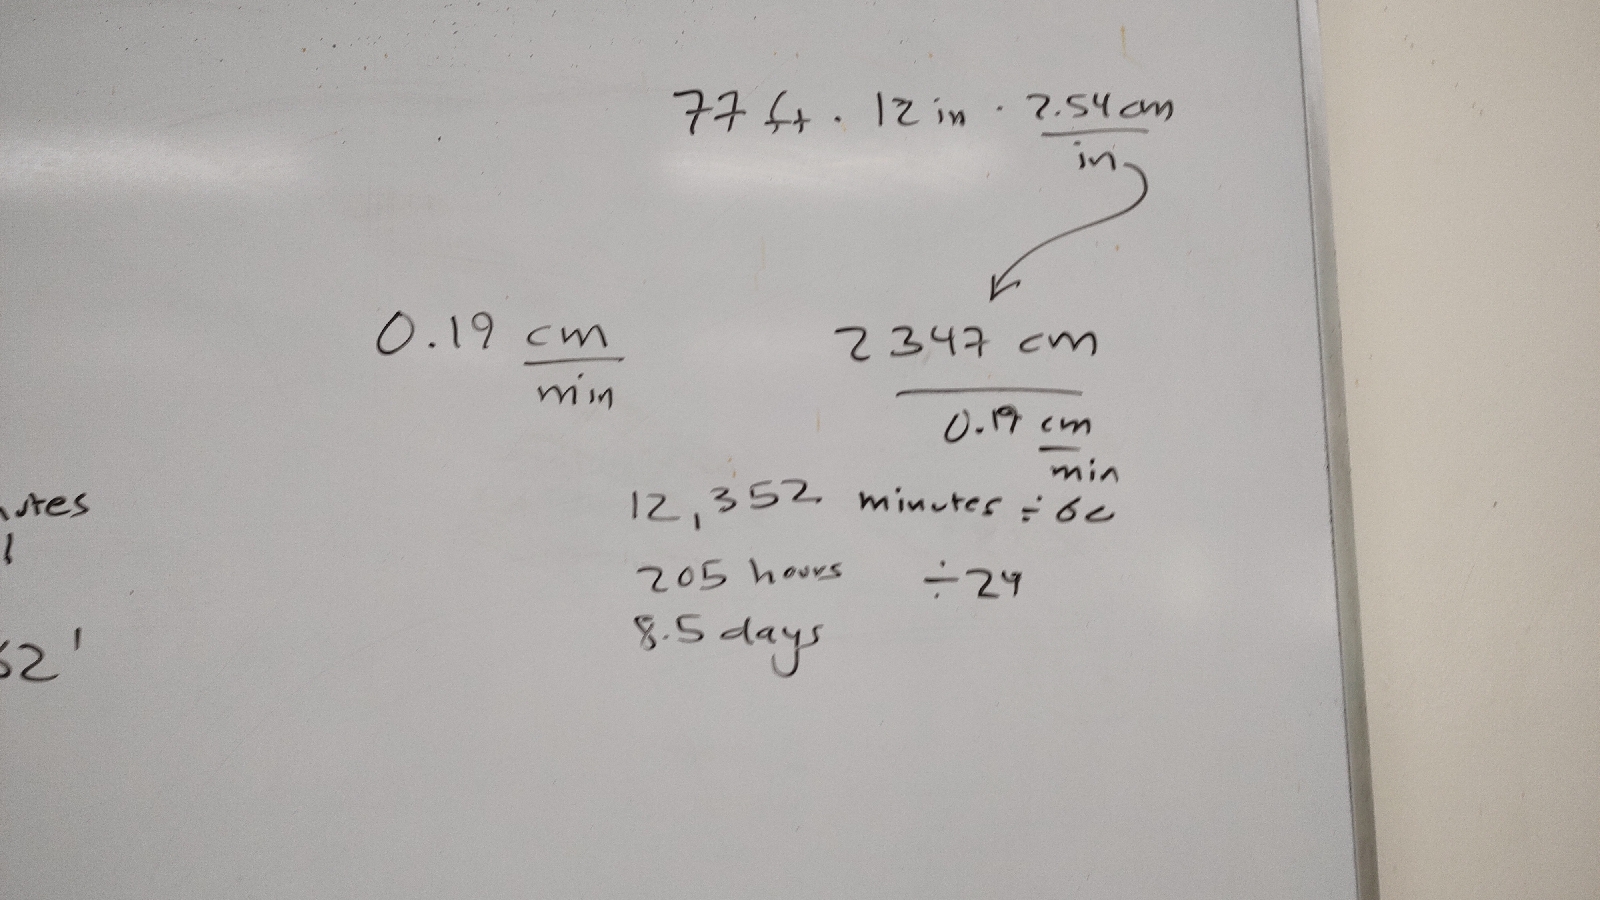 77 ft . 12 in . 2.54 cm
in
0.19 cm
min
2347 cm
0.19 cm
min
12,352 minutes ÷ 60
205 hours ÷ 24
8.5 days